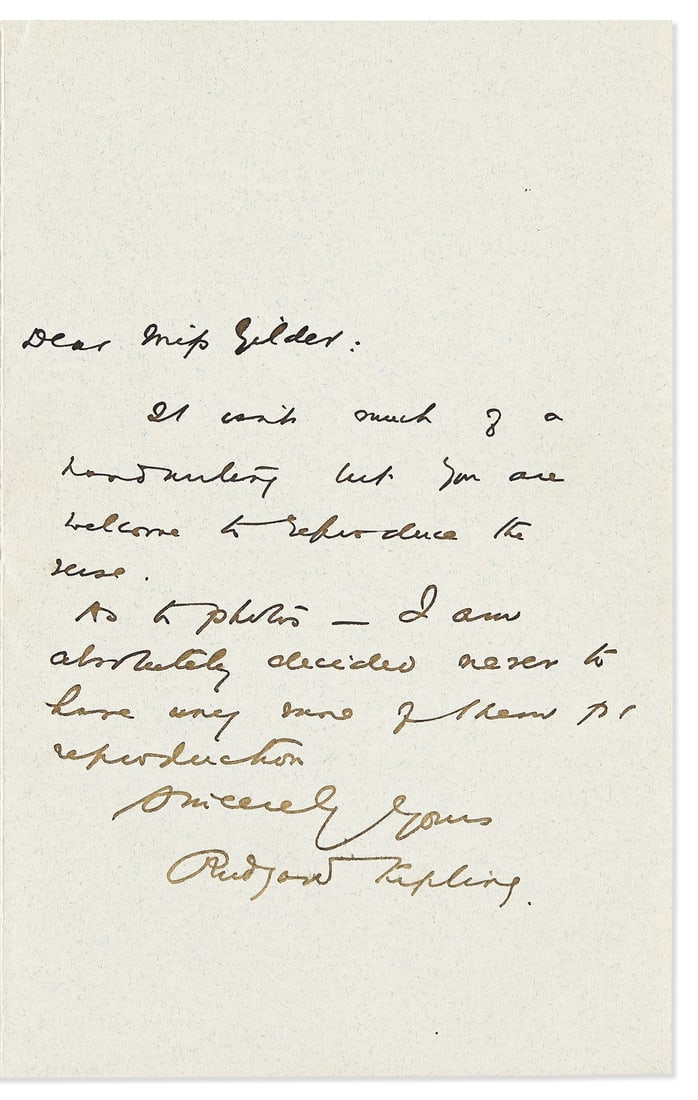 Dear Miss Gilder:
It isn't much of a
handwriting but you are
welcome to reproduce the
verse.
As to photos — I am
absolutely decided never to
have any more of them for
reproduction
Sincerely yours
Rudyard Kipling.